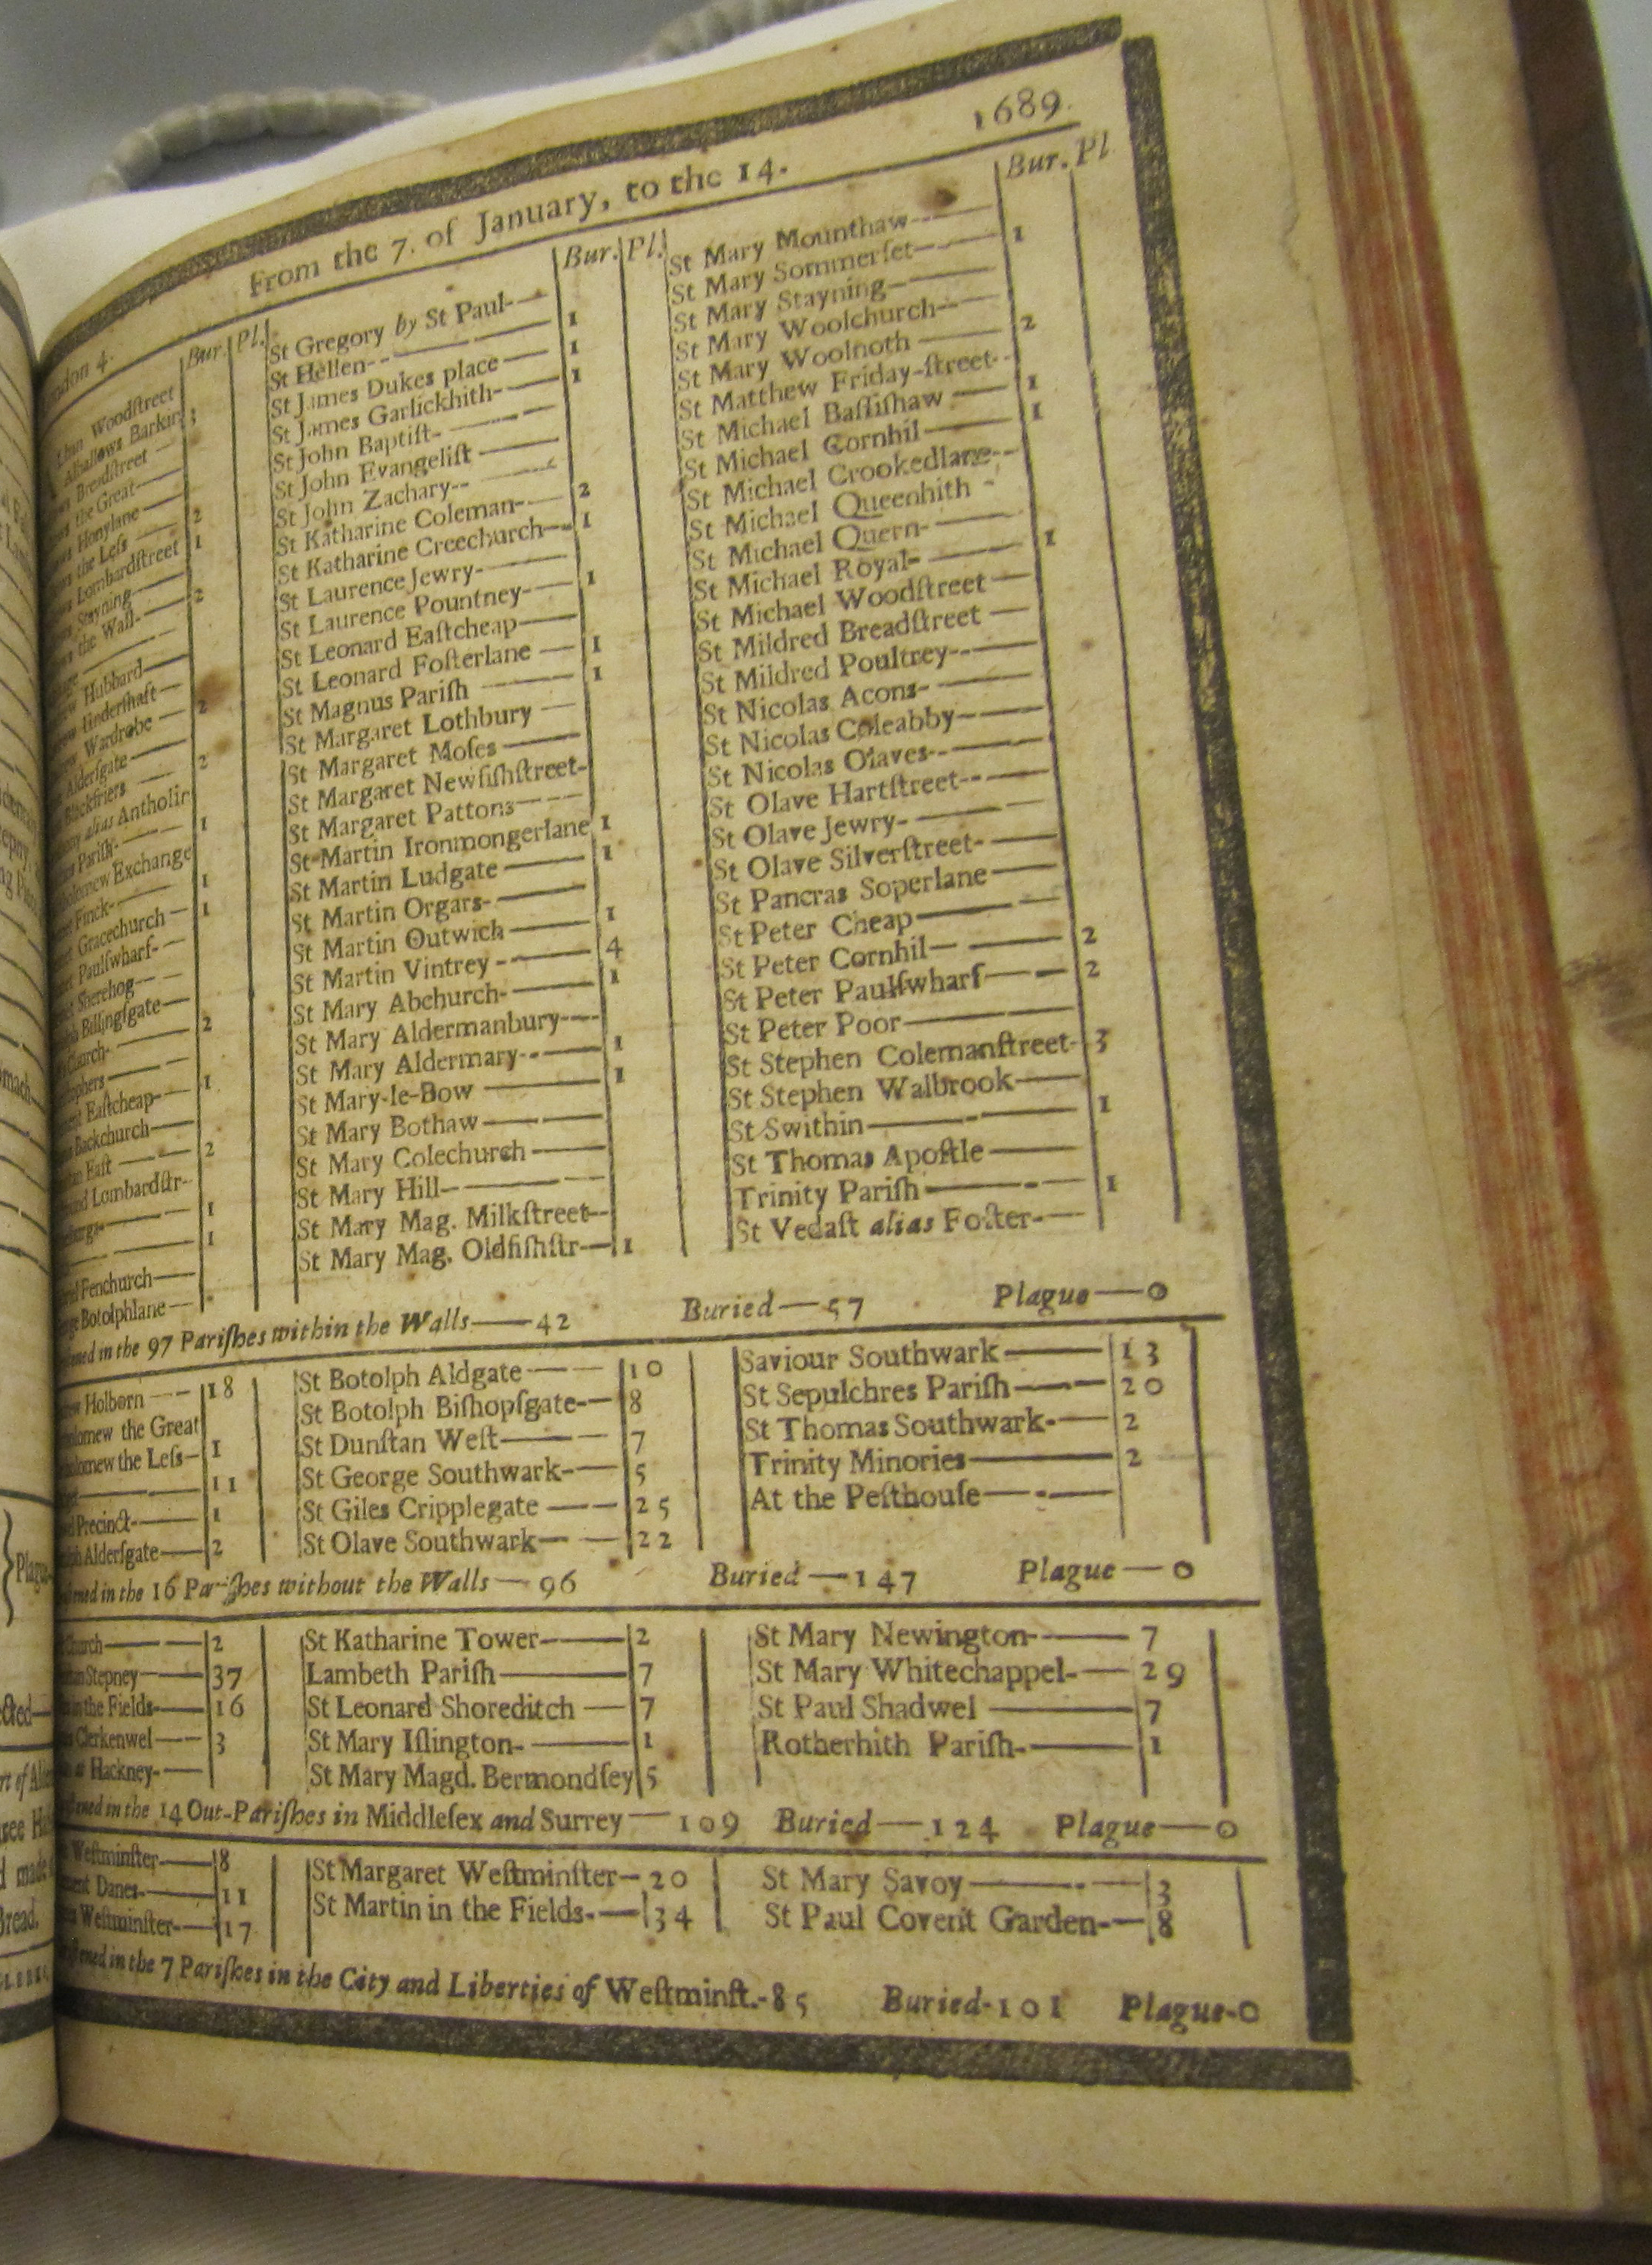 From the 7. of January, to the 14. 1689.
Bur. Pl.
Woodſtreet
Barkin
Breadſtreet
the Great
Honylane
the Leſs 2
Lombardſtreet 1
Stayning
the Wall 2
Hubbard
Underſhaft
Wardrobe 2
Alderſgate
Blackfriers 2
alias Antholin
Pariſh 1
Exchange
Finck 1
Gracechurch 1
Paulſwharf
Sherehog
Billingſgate
2
Eaſtcheap 1
Backchurch
Eaſt 2
Lombardſtr
1
1
Fenchurch
Botolphlane
Bur. Pl.
St Gregory by St Paul
St Hellen 1
St James Dukes place 1
St James Garlickhith 1
St John Baptiſt
St John Evangeliſt
St John Zachary
St Katharine Coleman 2
St Katharine Creechurch 1
St Laurence Jewry
St Laurence Pountney 1
St Leonard Eaſtcheap
St Leonard Foſterlane 1
St Magnus Pariſh 1
St Margaret Lothbury
St Margaret Moſes
St Margaret Newfiſhſtreet
St Margaret Pattons
St Martin Ironmongerlane 1
St Martin Ludgate 1
St Martin Orgars
St Martin Outwich 1
St Martin Vintrey 4
St Mary Abchurch 1
St Mary Aldermanbury
St Mary Aldermary 1
St Mary-le-Bow 1
St Mary Bothaw
St Mary Colechurch
St Mary Hill
St Mary Mag. Milkſtreet
St Mary Mag. Oldfiſhſtr 1
Bur. Pl
St Mary Mounthaw
St Mary Sommerſet 1
St Mary Stayning
St Mary Woolchurch
St Mary Woolnoth 2
St Matthew Friday-ſtreet
St Michael Baſſiſhaw 1
St Michael Cornhil 1
St Michael Crookedlane
St Michael Queenhith
St Michael Quern
St Michael Royal 1
St Michael Woodſtreet
St Mildred Breadſtreet
St Mildred Poultrey
St Nicolas Acons
St Nicolas Coleabby
St Nicolas Olaves
St Olave Hartſtreet
St Olave Jewry
St Olave Silverſtreet
St Pancras Soperlane
St Peter Cheap
St Peter Cornhil 2
St Peter Paulſwharf 2
St Peter Poor
St Stephen Colemanſtreet 3
St Stephen Walbrook
St Swithin 1
St Thomas Apoſtle
Trinity Pariſh 1
St Vedaſt alias Foſter
in the 97 Pariſhes within the Walls—42 Buried—57 Plague—0
Holborn 18
the Great
the Leſs 1
11
Precinct 1
Alderſgate 2
St Botolph Aldgate 10
St Botolph Biſhopſgate 8
St Dunſtan Weſt 7
St George Southwark 5
St Giles Cripplegate 25
St Olave Southwark 22
Saviour Southwark 13
St Sepulchres Pariſh 20
St Thomas Southwark 2
Trinity Minories 2
At the Peſthouſe
in the 16 Pariſhes without the Walls—96 Buried—147 Plague—0
2
Stepney 37
in the Fields 16
Clerkenwel 3
Hackney
St Katharine Tower 2
Lambeth Pariſh 7
St Leonard Shoreditch 7
St Mary Iſlington 1
St Mary Magd. Bermondſey 5
St Mary Newington 7
St Mary Whitechappel 29
St Paul Shadwel 7
Rotherhith Pariſh 1
in the 14 Out-Pariſhes in Middleſex and Surrey—109 Buried—124 Plague—0
Weſtminſter 8
Danes 11
Weſtminſter 17
St Margaret Weſtminſter 20
St Martin in the Fields 34
St Mary Savoy 3
St Paul Covent Garden 8
in the 7 Pariſhes in the City and Liberties of Weſtminſt.-85 Buried-101 Plague-0